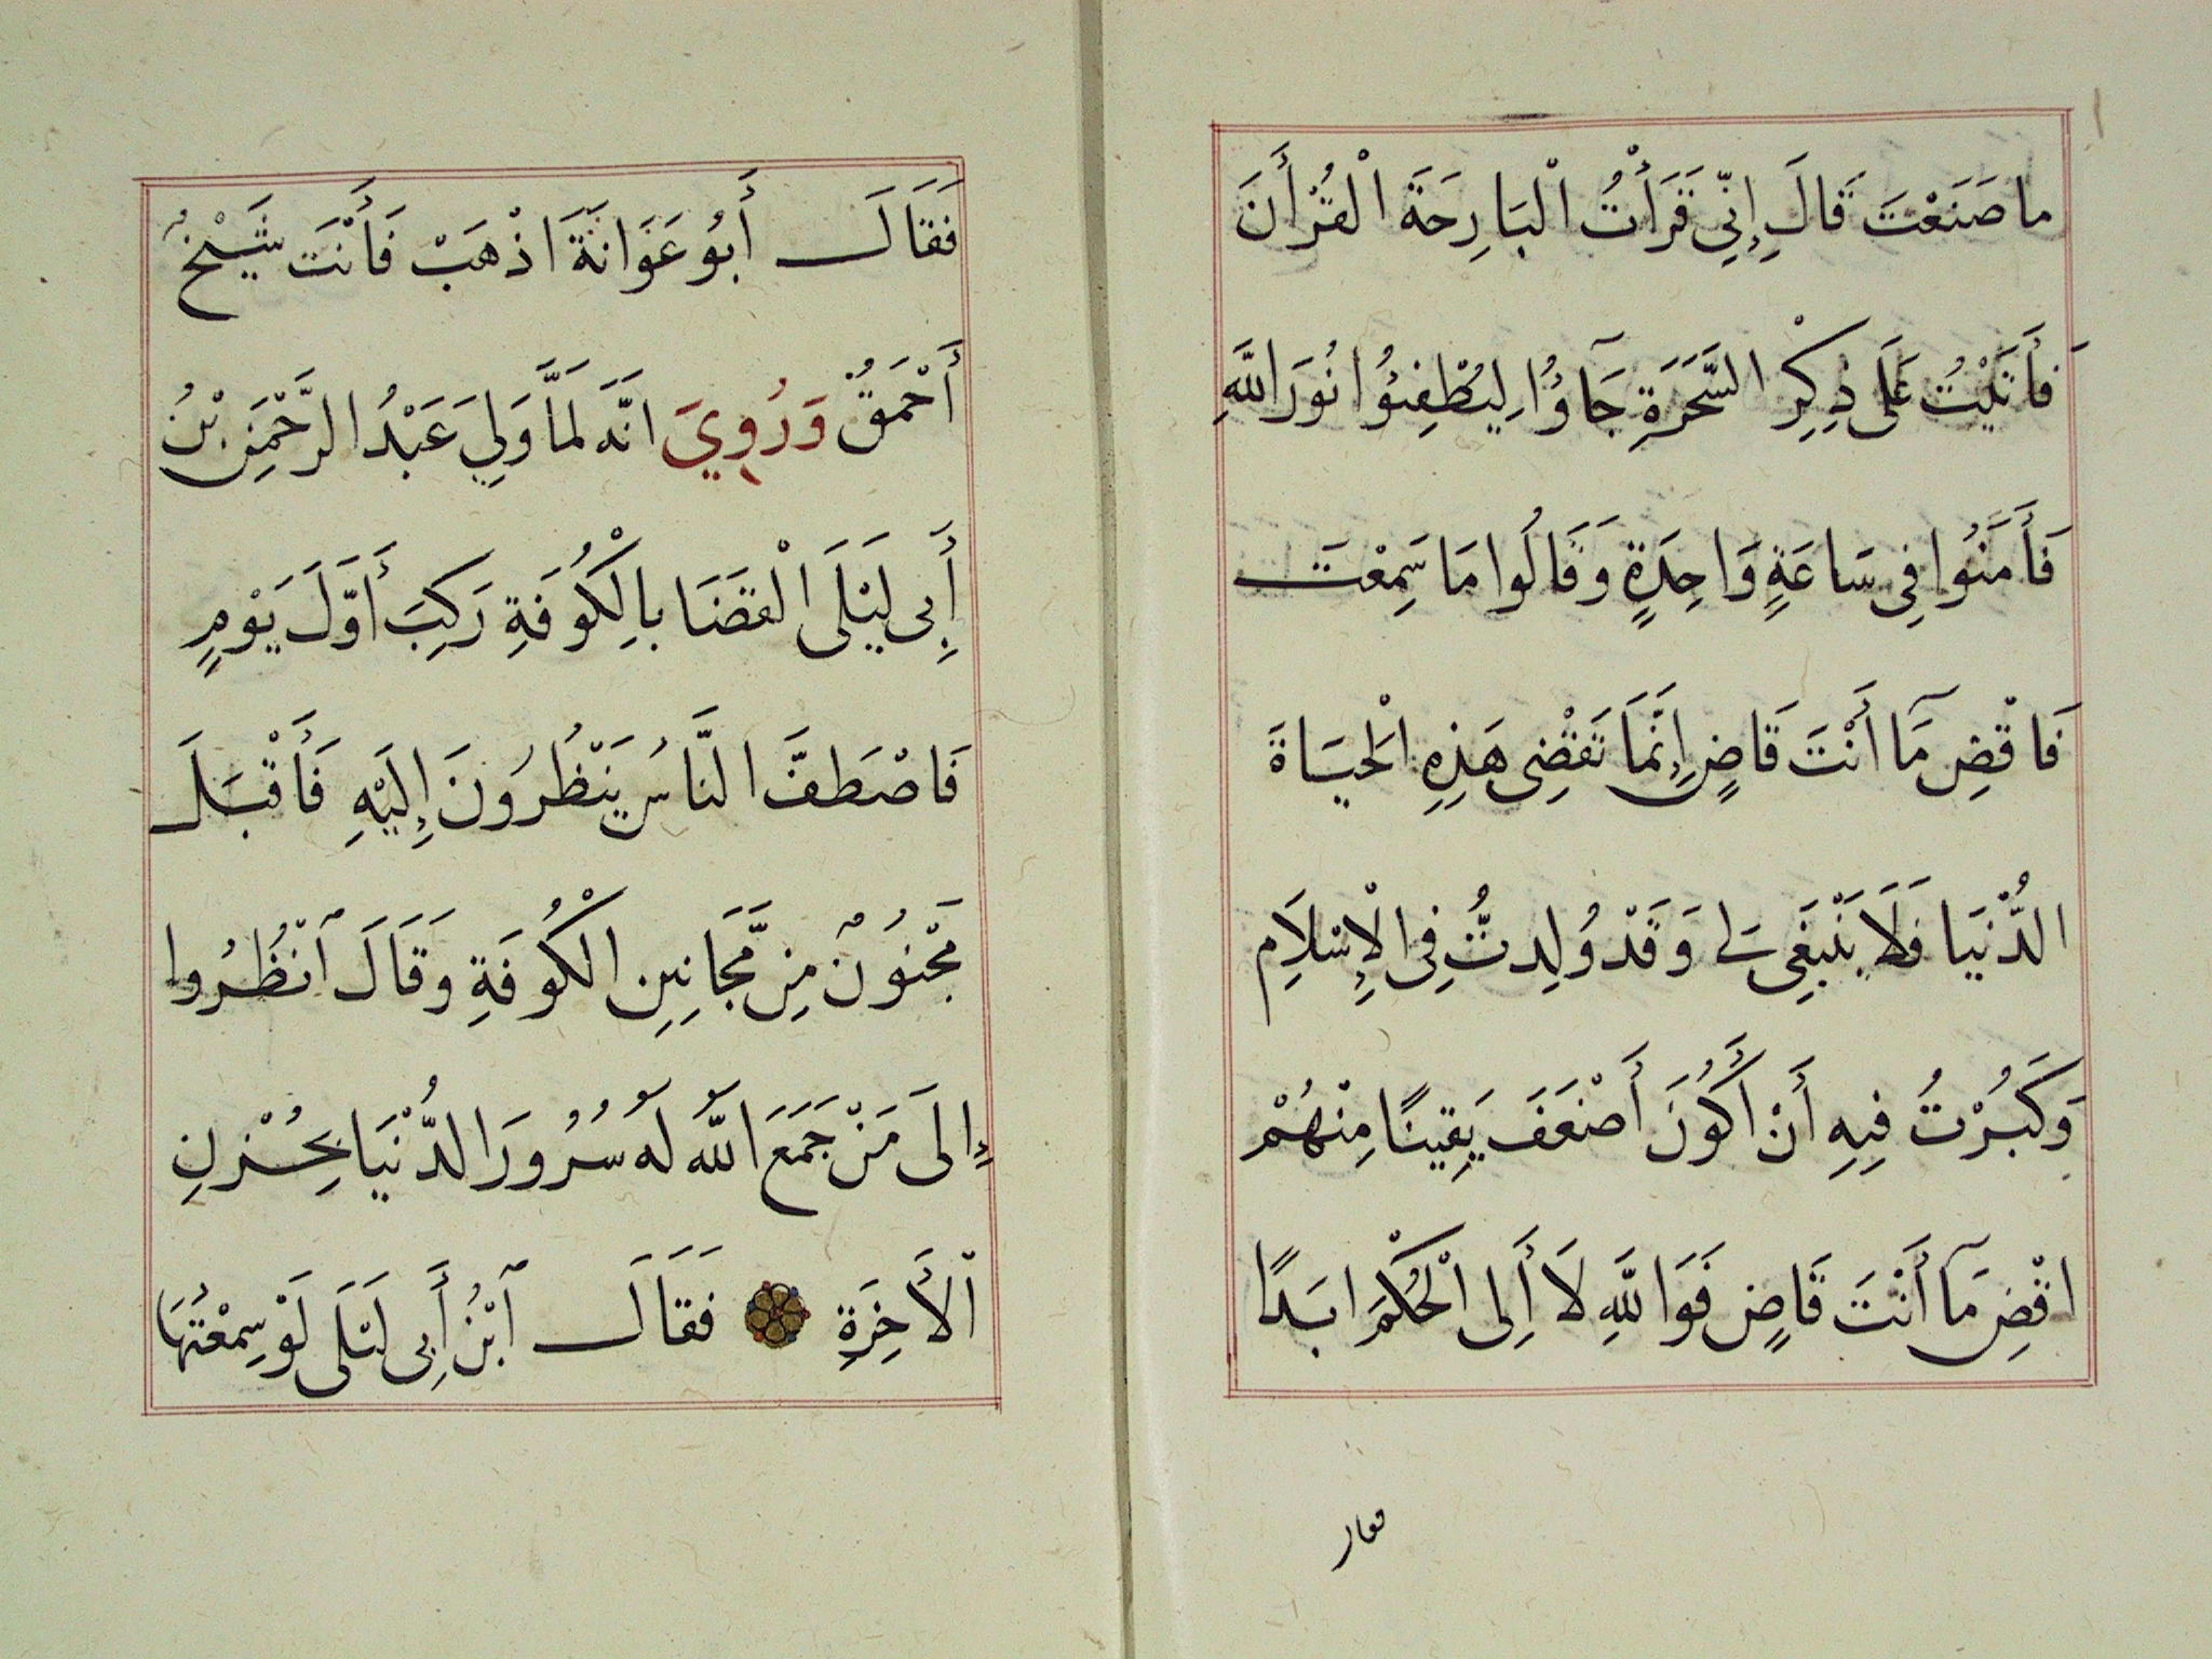 ما صَنَعْتَ قَالَ إِنِّي قَرَأْتُ الْبَارِحَةَ الْقُرْأَنَ
فَأَتَيْتُ عَلَى ذِكْرِ السَّحَرَةِ جَآؤُا لِيُطْفِئُوا نُورَ اللَّهِ
فَأَمَنُوا فِى سَاعَةٍ وَاحِدَةٍ وَقَالُوا مَا سَمِعْتَ
فَاقْضِ مَآ أَنْتَ قَاضٍ إِنَّمَا تَقْضِى هَذِهِ الْحَيَاةَ
الدُّنْيَا فَلَا يَنْبَغِى لِى وَقَدْ وُلِدتُّ فِى الْإِسْلَامِ
وَكَبُرْتُ فِيهِ أَنْ أَكُونَ أَضْعَفَ يَقِينًا مِنْهُمْ
اقْضِ مَآ أَنْتَ قَاضٍ فَوَاللَّهِ لَا أَلِى الْحُكْمَ ابَدًا
فقال
فَقَالَ أَبُو عَوَانَةَ اذْهَبْ فَأَنْتَ شَيْخٌ
أَحْمَقُ وَرُوِيَ انَّهُ لَمَّا وَلِيَ عَبْدُ الرَّحْمَنِ بْنُ
أَبِى لَيْلَى الْقَضَا بِالْكُوفَةِ رَكِبَ أَوَّلَ يَوْمٍ
فَاصْطَفَّ النَّاسُ يَنْظُرُونَ إِلَيْهِ فَأَقْبَلَ
مَجْنُونٌ مِن مَّجَانِينِ الْكُوفَةِ وَقَالَ ٱنْظُرُوا
إِلَى مَنْ جَمَعَ اللَّهُ لَهُ سُرُورَ الدُّنْيَا بِحُزْنِ
الْأَخِرَةِ فَقَالَ ٱبْنُ أَبِى لَيْلَى لَوْ سَمِعْتُهَا